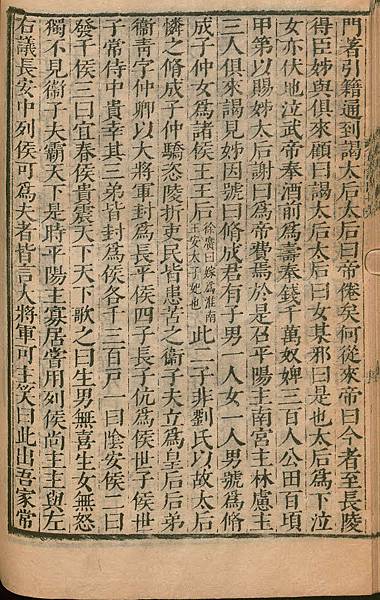 門著引籍通到謁太后太后曰帝倦矣何從來帝曰今者至長陵
得臣姊與俱來顧曰謁太后太后曰女某邪曰是也太后爲下泣
女亦伏地泣武帝奉酒前爲壽奉錢千萬奴婢三百人公田百頃
甲第以賜姊太后謝曰爲帝費焉於是召平陽主南宮主林慮主
三人俱來謁見姊因號曰脩成君有子男一人女一人男號爲脩
成子仲女爲諸侯王王后徐廣曰嫁爲淮南王安太子妃也此二子非劉氏以故太后
憐之脩成子仲驕恣陵折吏民皆患苦之衞子夫立爲皇后后弟
衞青字仲卿以大將軍封爲長平侯四子長子伉爲侯世子侯世
子常侍中貴幸其三弟皆封爲侯各千三百戸一曰陰安侯二曰
發千侯三曰宜春侯貴震天下天下歌之曰生男無喜生女無怒
獨不見衞子夫霸天下是時平陽主寡居當用列侯尚主主與左
右議長安中列侯可爲夫者皆言大將軍可主笑曰此出吾家常